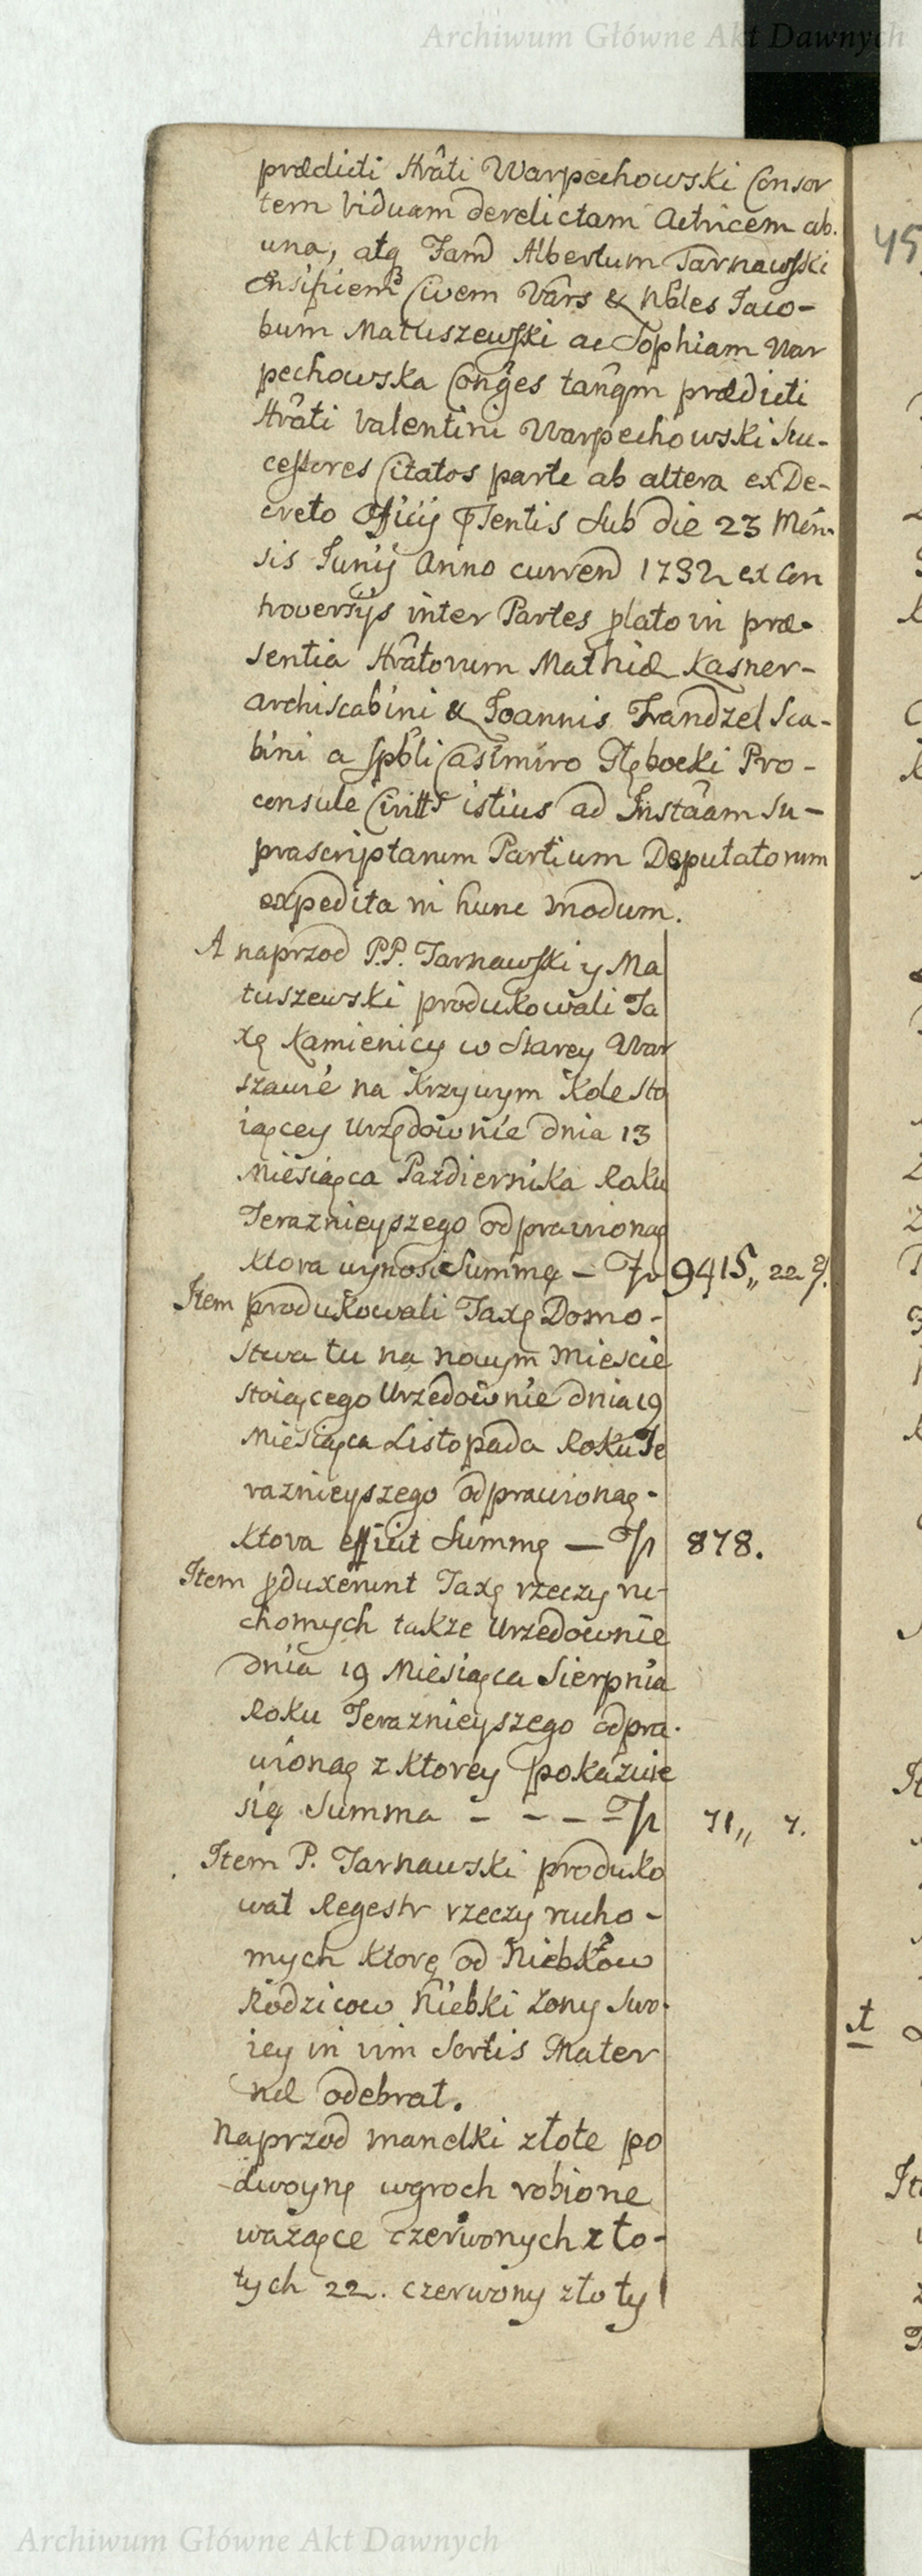 Archiwum Główne Akt Dawnych
prædicti Hrâti Warpechowski Consor
tem Viduam derelictam Actricem ab.
una, atq Famd Albertum Tarnawski
Ensificem Civem Vars & Nbles Jaco-
bum Matuszewski ac Sophiam War
pechowska Conges tanqm prædicti
Hrâti Valentini Warpechowski Su-
cessores Citatos parte ab altera ex De-
creto Officij pſentis Sub die 23 Men-
sis Junij Anno currend 1732 ex Con
troversijs inter Partes plato in præ-
sentia Hrâtorum Mathiæ Kasner-
archiscabini & Joannis Frandzel Sca-
bini a Spbli Casimiro Głębocki Pro-
consule Civitts istius ad Instâam Su-
prascriptarum Partium Deputatorum
expedita in hunc modum.
A naprzod P.P. Tarnawski y Ma
tuszewski produkowali Ta
xę Kamienicy w Starey War
szawie na Krzywym Kole Sto
iącey Urzędownie dnia 13
Miesiąca Pazdiernika Roku
Teraznieyszego odprawioną
Ktora wynosi Summę – 9415,, 22
45
Item produkowali Taxę Domo-
stwa tu na nowym Miescie
stoiącego Urzedownie dnia 19
Miesiąca Listopada Roku Te
raznieyszego odprawioną-
Ktora efficit Summę — 878.
Item pduxerunt Taxę rzeczy ru-
chomych takze Urzedownie
dnia 19 Miesiąca Sierpnia
Roku Teraznieyszego odpra-
wioną z Ktorey pokazuie
się Summa - - - - 71,, 7.
Item P. Tarnawski produko
wał Regestr rzeczy rucho-
mych Ktorę od Niebktow
Rodzicow Niebki Zony Swo-
iey in vim Sortis Mater
næ odebrał.
Naprzod manelki złote po
dwoynę wgroch robione
wazące czerwonych zło-
tych 22. czerwony złoty
Archiwum Główne Akt Dawnych